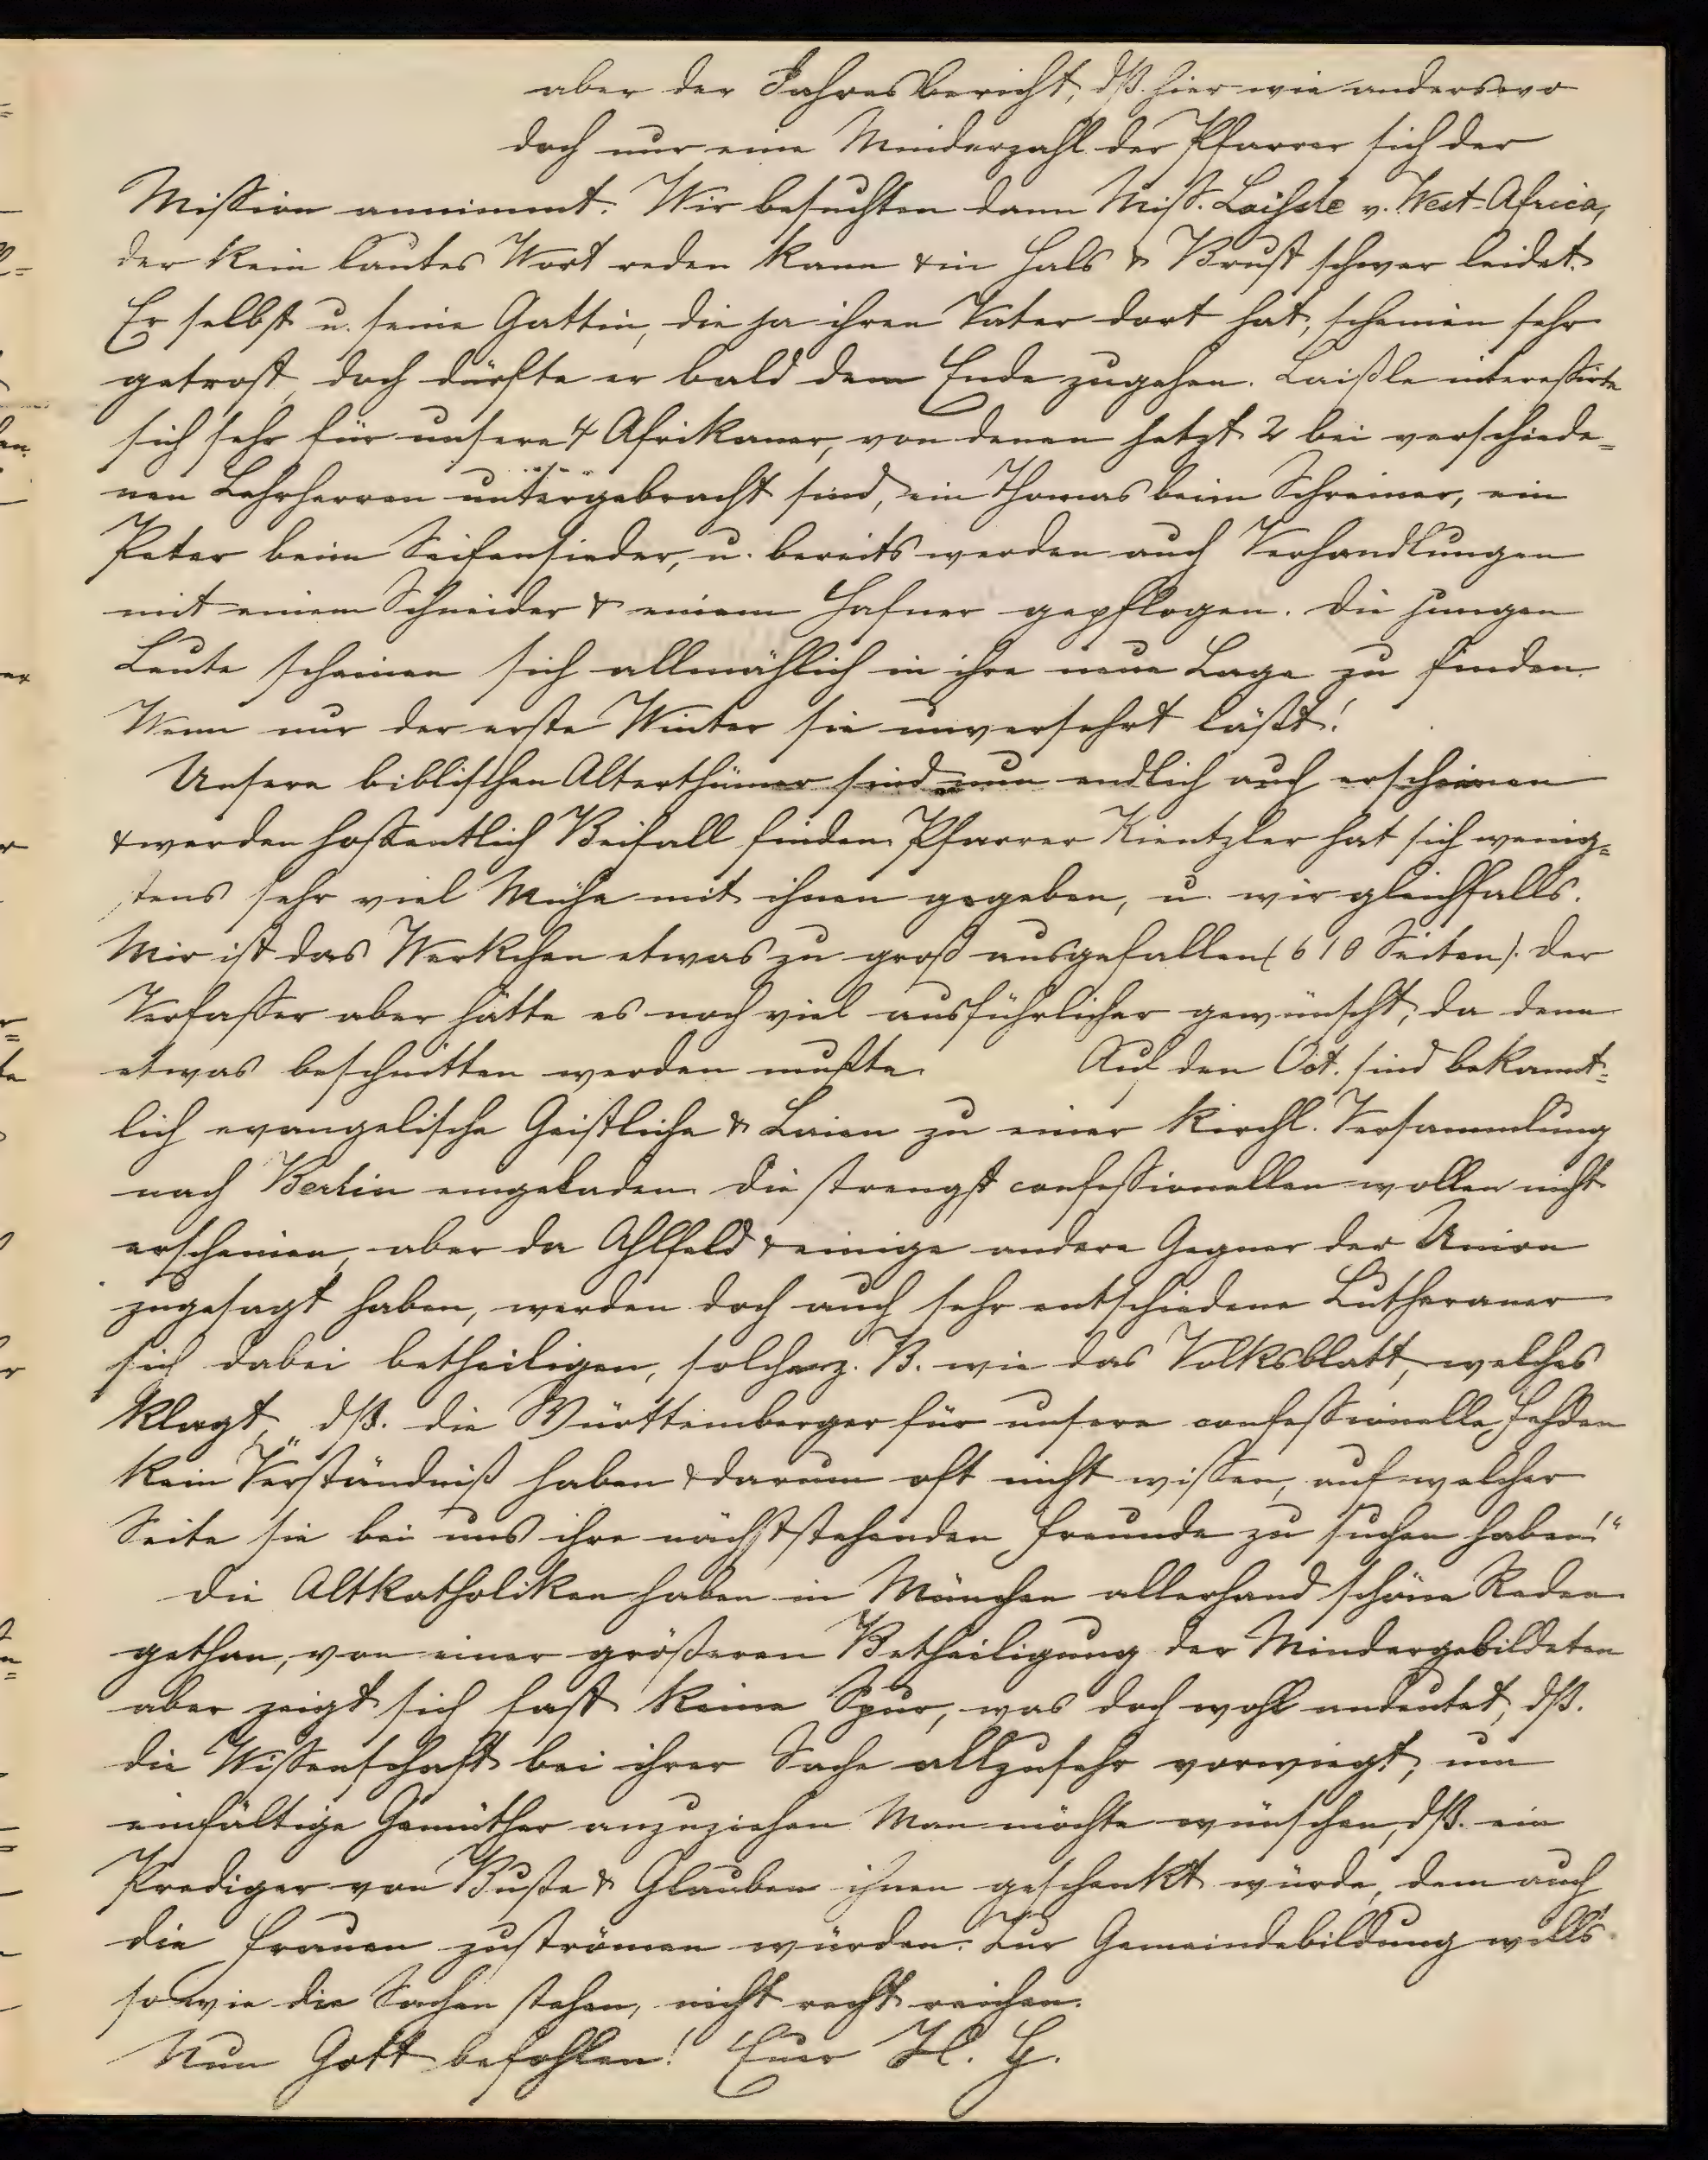 aber der Jahresbericht, dß. hier wie anderswo
doch nur eine Minderzahl der Pfarrer sich der
Mission annimmt. Wir besuchten dann Miss. Laißle v. West-Africa,
der kein lautes Wort reden kann & in Hals & Brust schwer leidet.
Er selbst u. seine Gattin, die ja ihren Vater dort hat, scheinen sehr
getrost, doch dürfte er bald dem Ende zugehen. Laißle interessirte
sich sehr für unsere 4 Afrikaner, von denen jetzt 2 bei verschiede=
nen Lehrherren untergebracht sind, ein Thomas beim Schreiner, ein
Peter beim Seifensieder, u. bereits werden auch Verhandlungen
mit einem Schneider & einem Hafner gepflogen. Die jungen
Leute scheinen sich allmählich in ihre neue Lage zu finden.
Wenn nur der erste Winter sie unversehrt läßt!
Unsere biblischen Alterthümer sind nun endlich auch erschienen
& werden hoffentlich Beifall finden. Pfarrer Kientzler hat sich wenig=
stens sehr viel Mühe mit ihnen gegeben, u. wir gleichfalls.
Mir ist das Werkchen etwas zu groß ausgefallen (610 Seiten). Der
Verfasser aber hätte es noch viel ausführlicher gewünscht, da denn
etwas beschnitten werden mußte. Auf den Oct. sind bekannt=
lich evangelische Geistliche & Laien zu einer kirchl. Versammlung
nach Berlin eingeladen. Die strengst confessionellen wollen nicht
erscheinen, aber da Ahlfeld & einige andere Gegner der Union
zugesagt haben, werden doch auch sehr entschiedene Lutheraner
sich dabei betheiligen, solche z. B. wie das Volksblatt, welches
klagt, „dß. die Württemberger für unsere confessionelle Fehden
kein Verständniß haben & darum oft nicht wissen, auf welcher
Seite sie bei uns ihre nächststehenden Freunde zu suchen haben!“
Die Altkatholiken haben in München allerhand schöne Reden
gethan, von einer größeren Betheiligung der Mindergebildeten
aber zeigt sich fast keine Spur, was doch wohl andeutet, dß.
die Wissenschaft bei ihrer Sache allzusehr vorwiegt, um
einfältige Gemüther anzuziehen. Man möchte wünschen, dß. ein
Prediger von Buße & Glauben ihnen geschenkt würde, dem auch
die Frauen zuströmen würden. Zur Gemeindebildung wills
so wie die Sachen stehen, nicht recht reichen.
Nun Gott befohlen! Euer H. G.